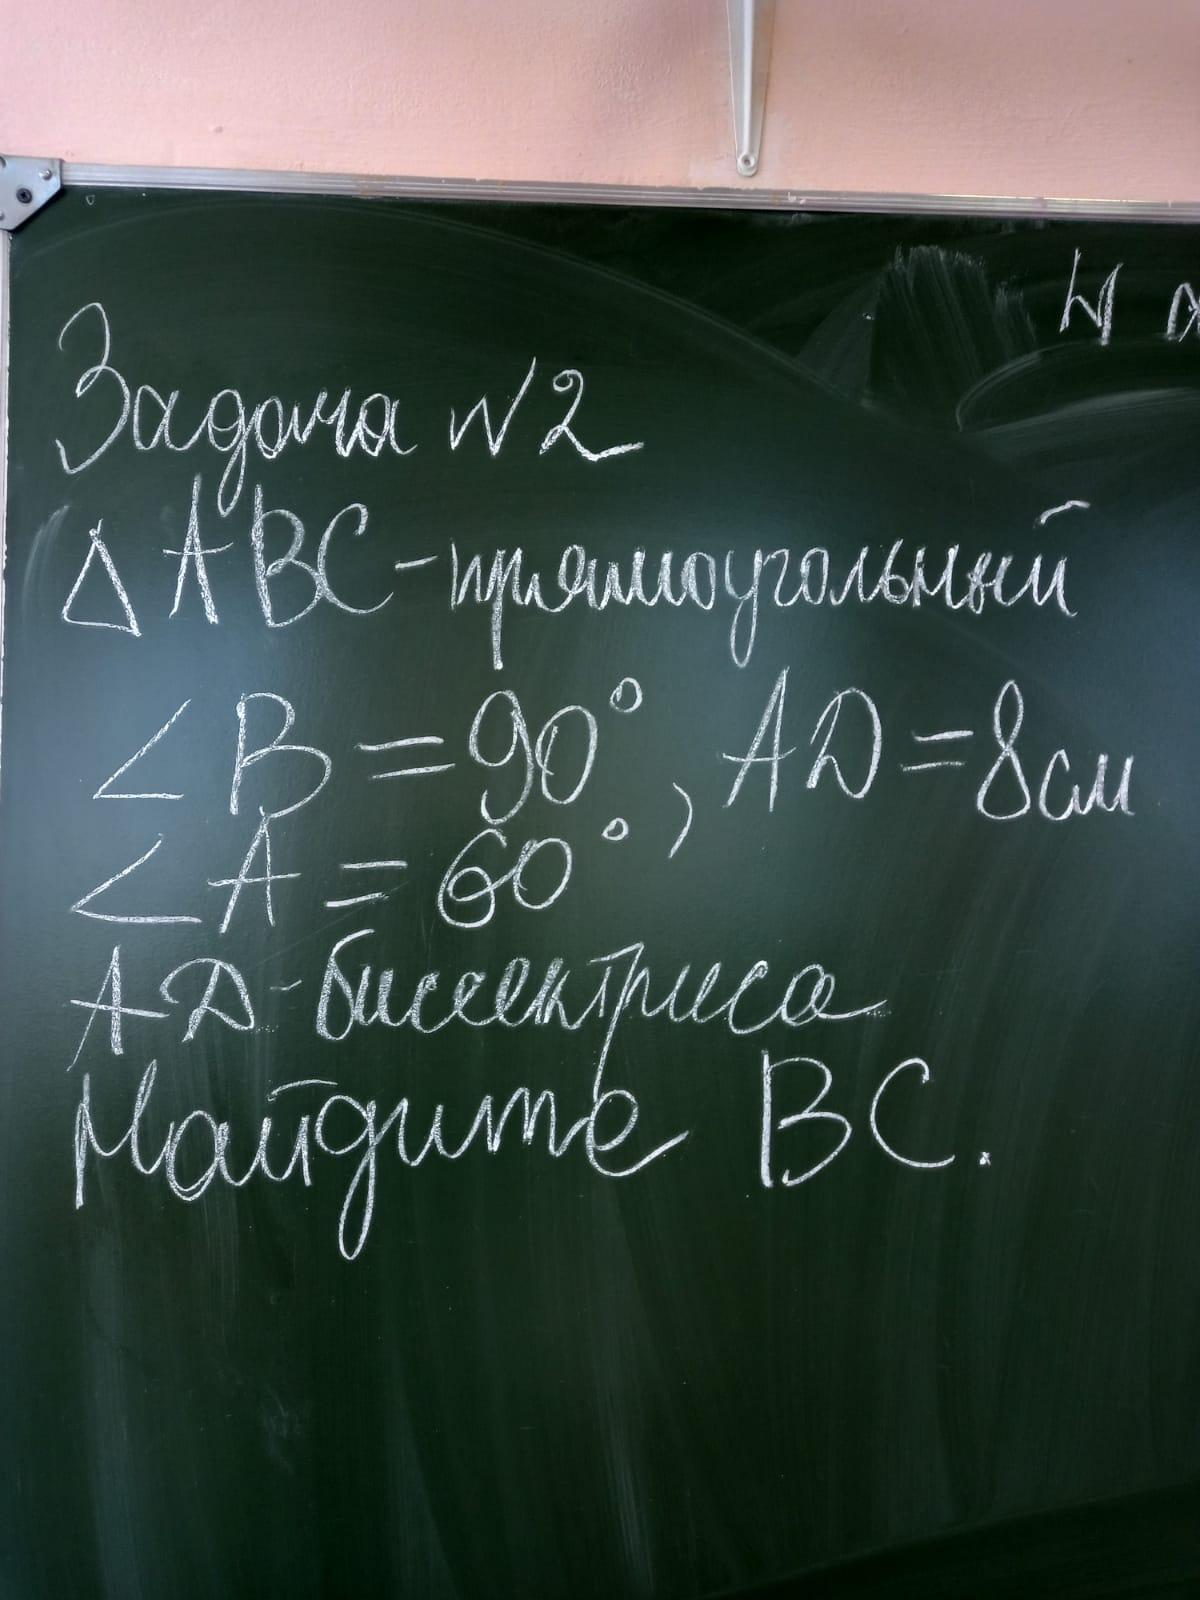 Задача №2
△ABC-прямоугольный
∠B=90°, AD=8см
∠A=60°
AD-биссектриса
Найдите BC.